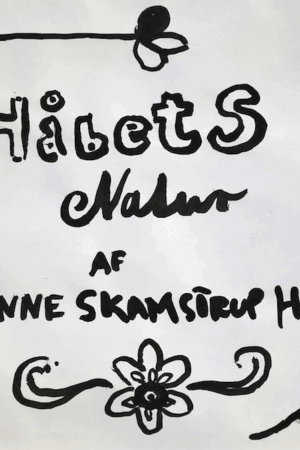 Håbets
Natur
AF
NNE SKAMSTRUP H